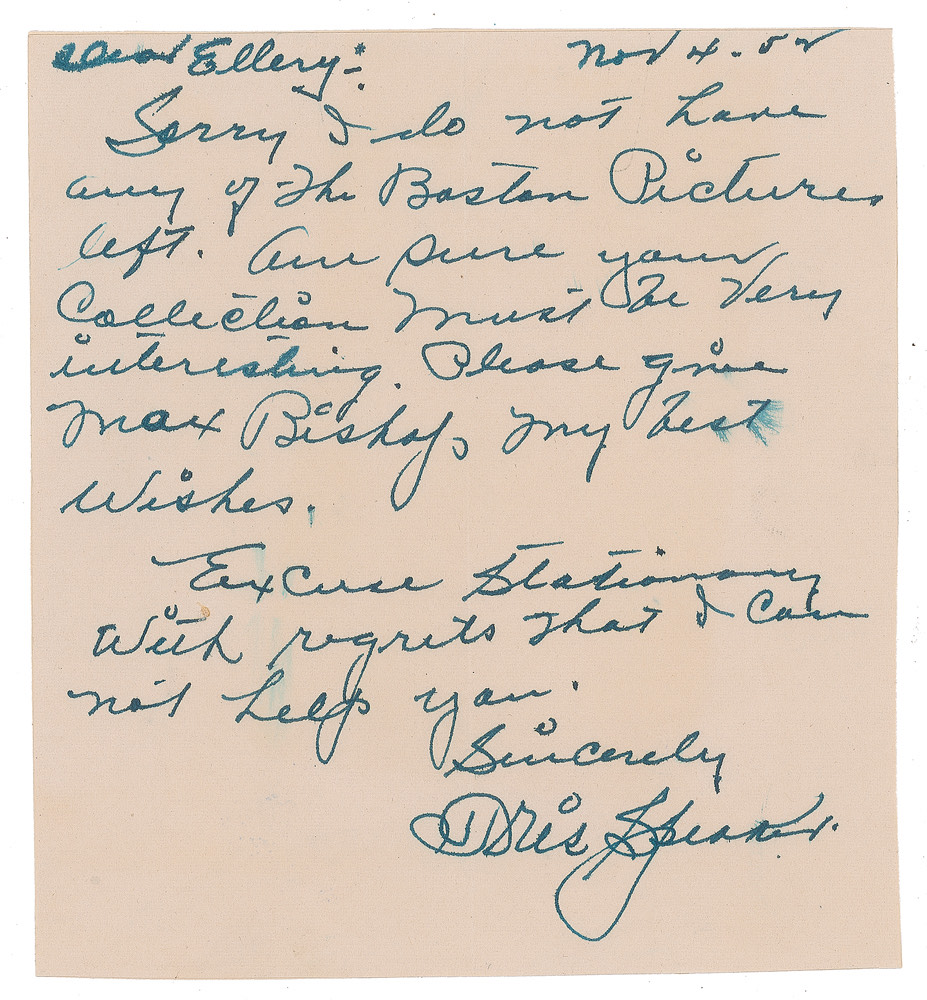 Dear Ellery:- Nov 4-52
Sorry I do not have
any of The Boston Pictures
left. Am sure your
Collection Must be Very
interesting. Please give
Max Bishop my best
Wishes.
Excuse Stationary
With regrets that I Can
not help you.
Sincerely
Tris Speaker.